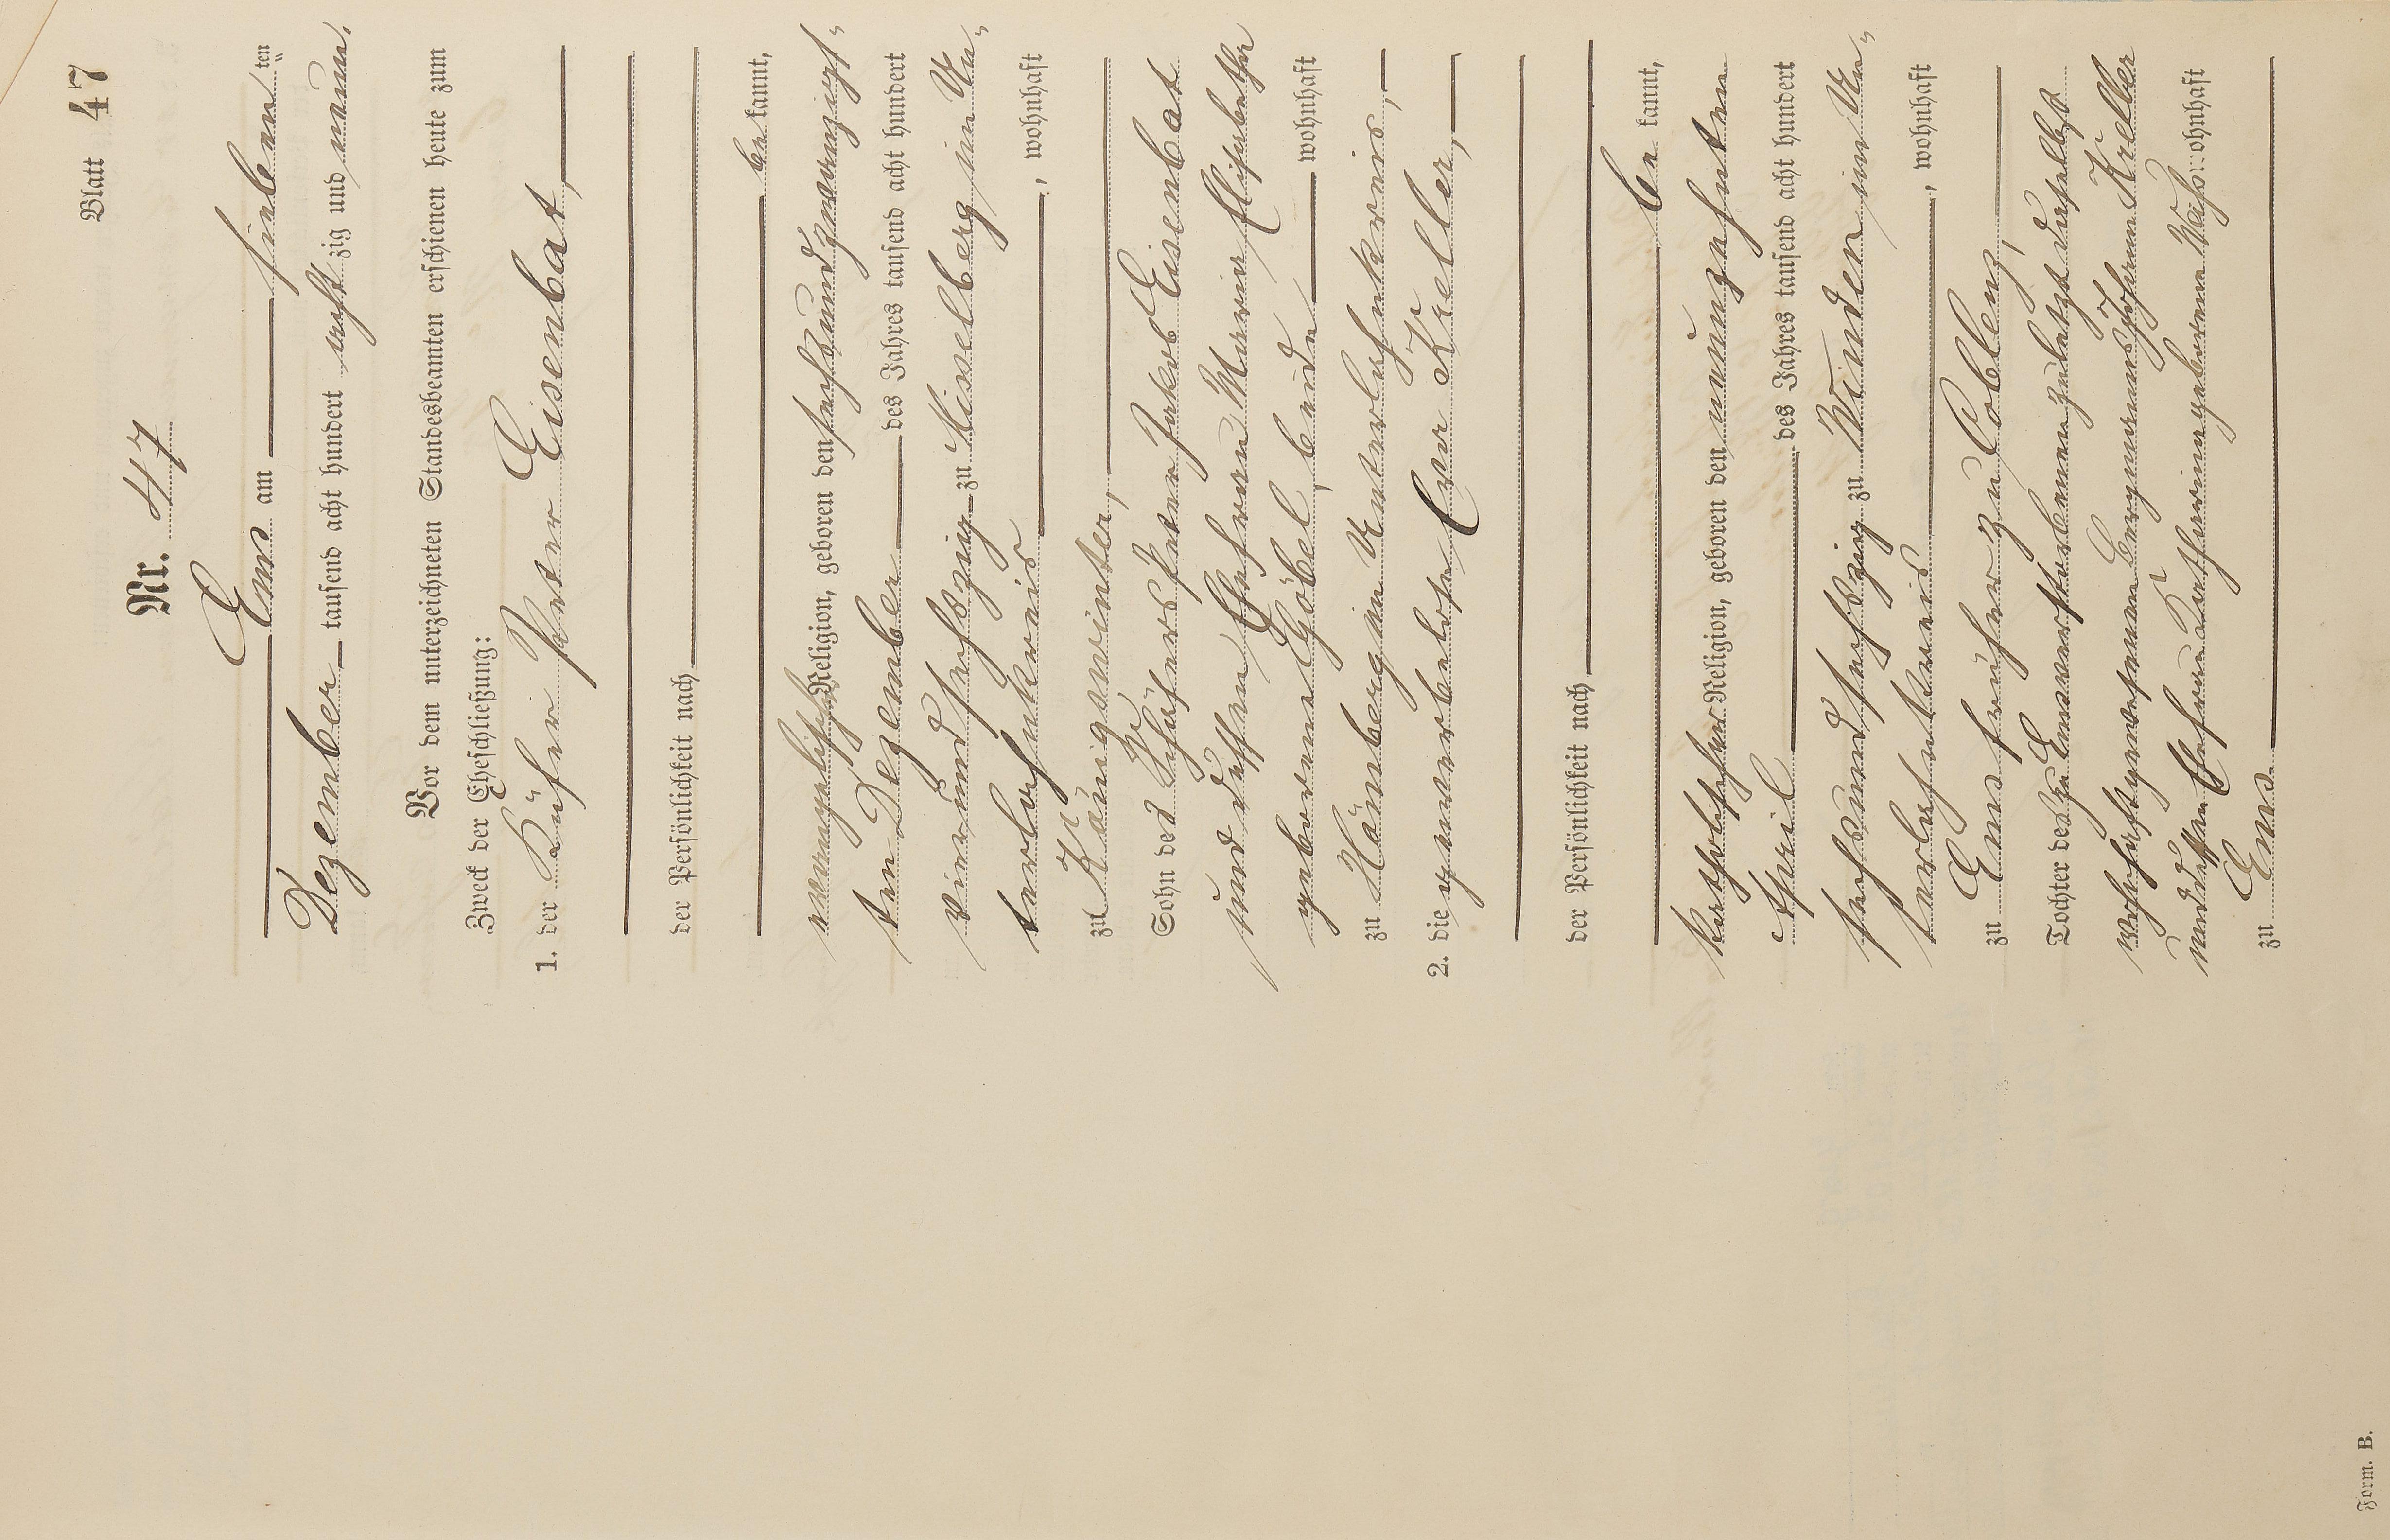 Blatt 47
Nr. 47
Ems am sieben ten
Dezember tausend acht hundert acht zig und neun.
Vor dem unterzeichneten Standesbeamten erschienen heute zum
Zweck der Eheschließung:
1. der Küfer Peter Eisenbat,
der Persönlichkeit nach
be kannt,
evangelischer Religion, geboren den sechsundzwanzigs-
ten Dezember des Jahres tausend acht hundert
vierundsechszig zu Misselberg im Un-
terlahnkreis, wohnhaft
zu Königswinter,
Sohn des Schäfers Peter Jakob Eisenbat
und dessen Ehefrau Maria Elisabethe
geborene Göbel, beide wohnhaft
zu Hömberg im Unterlahnkreis,
2. die gewerbelose Eva Kreller,
der Persönlichkeit nach
be kannt,
katholischer Religion, geboren den neunzehnten
April des Jahres tausend acht hundert
sechsundsechszig zu Winden im Un-
terlahnkreis, wohnhaft
zu Ems früher zu Coblenz,
Tochter des zu Ems verstorbenen zuletzt daselbst
wohnhaft gewesenen Bergmanns Johann Kreller
und dessen Ehefrau Katharina geborene wohnhaft
zu Ems.
Form. B.